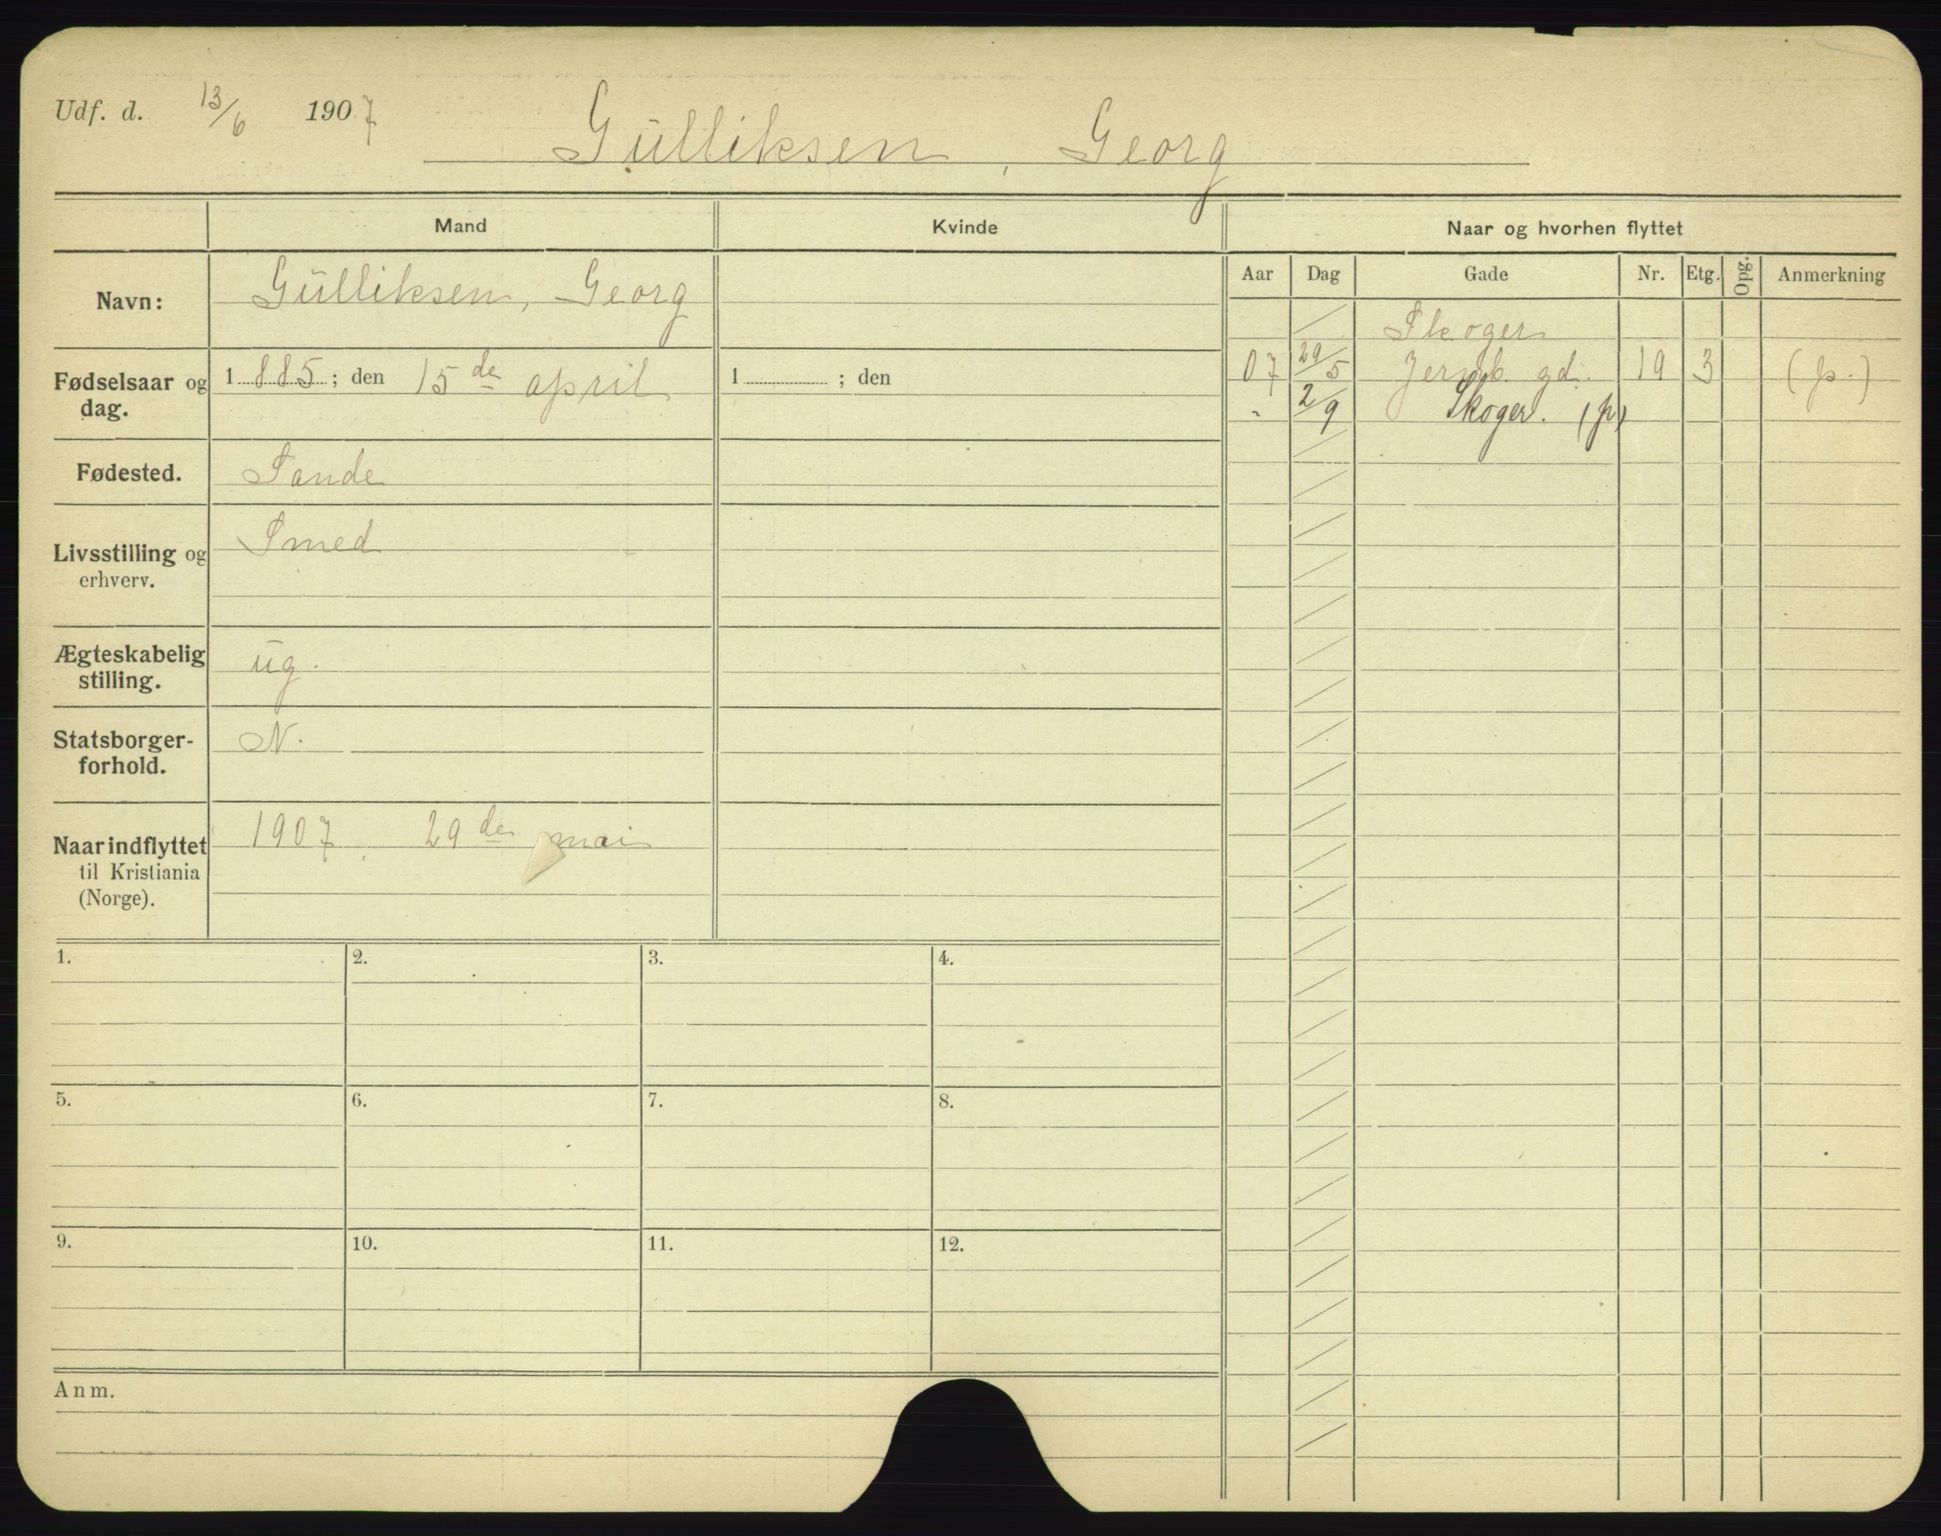 Udf. d. 13/6 1907
Gulliksen, Georg
Mand
Kvinde
Naar og hvorhen flyttet
Aar Dag Gade Nr. Etg. Opg. Anmerkning
Navn: Gulliksen, Georg
Skoger
Fødselsaar og dag. 1885; den 15de april
1 ; den
07 29/5 Jernb. gd. 19 3 (p.)
" 2/9 Skoger. (p)
Fødested. Sande
Livsstilling og erhverv. Smed
Ægteskabelig stilling. ug.
Statsborger-
forhold. N.
Naar indflyttet
til Kristiania
(Norge). 1907, 29de mai
1. 2. 3. 4.
5. 6. 7. 8.
9. 10. 11. 12.
Anm.